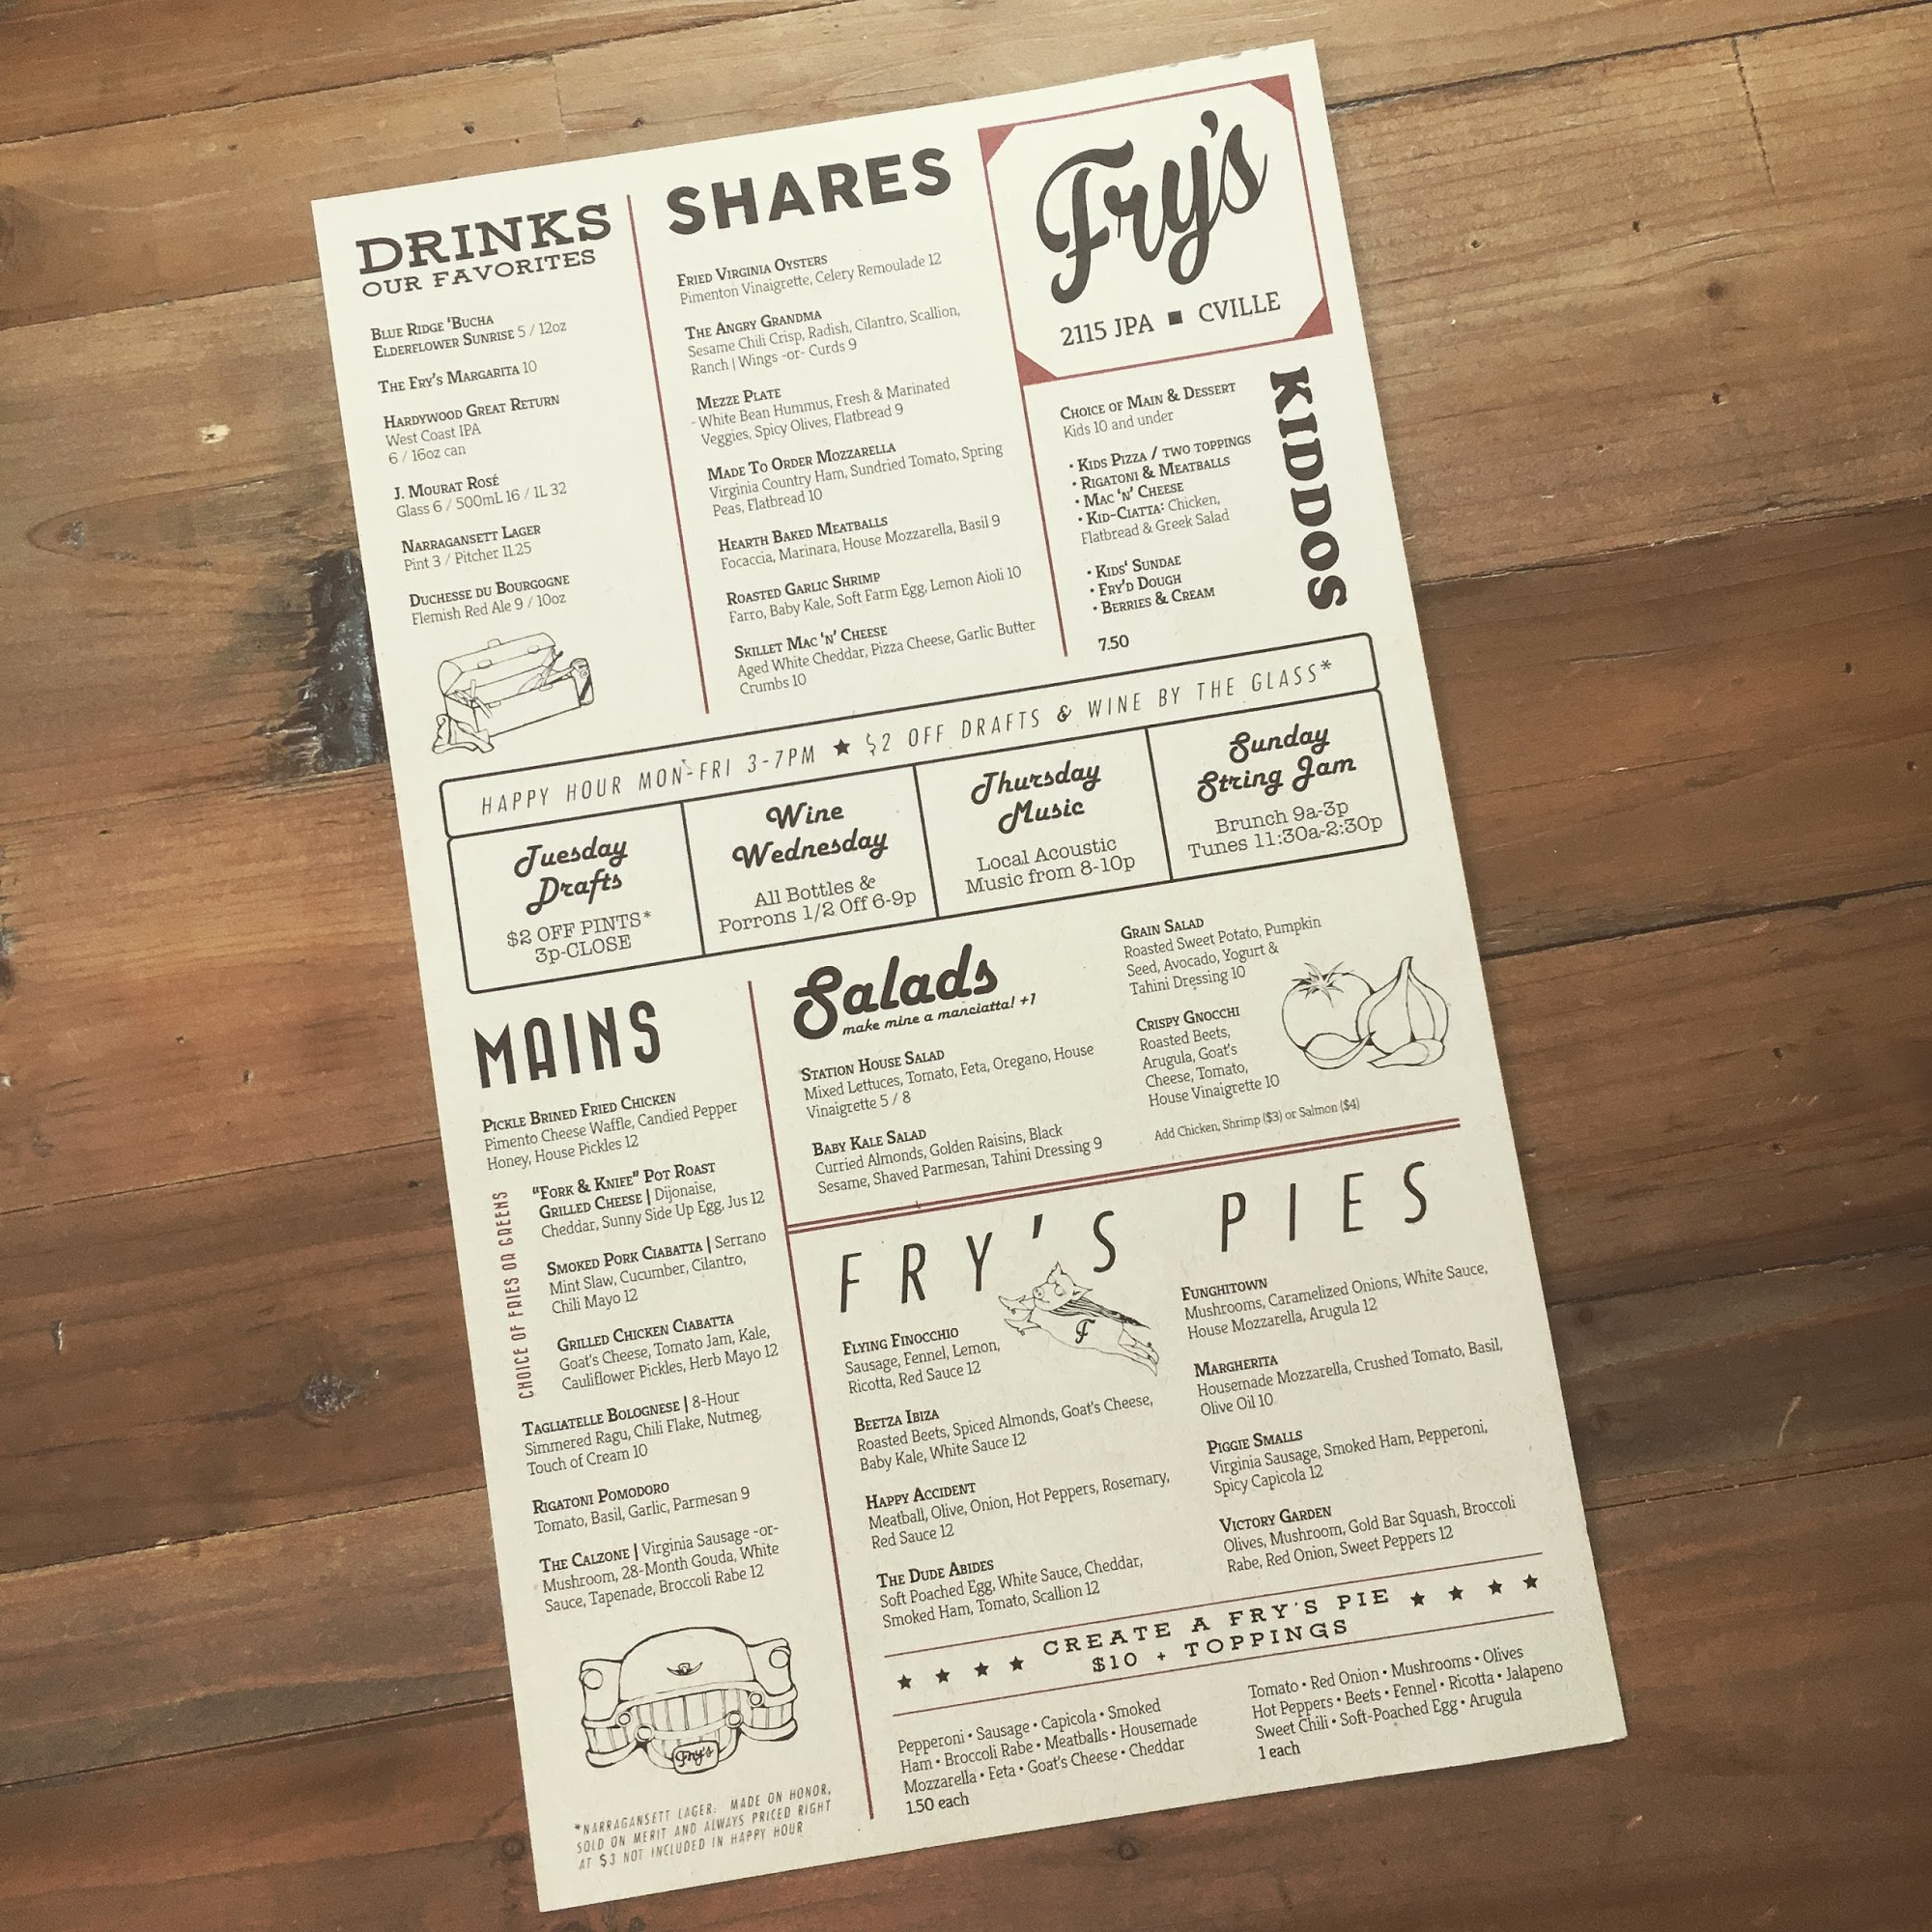 DRINKS
OUR FAVORITES
BLUE RIDGE 'BUCHA
ELDERFLOWER SUNRISE 5 / 12oz
THE FRY'S MARGARITA 10
HARDYWOOD GREAT RETURN
West Coast IPA
6 / 16oz can
J. MOURAT ROSÉ
Glass 6 / 500mL 16 / 1L 32
NARRAGANSETT LAGER
Pint 3 / Pitcher 11.25
DUCHESSE DU BOURGOGNE
Flemish Red Ale 9 / 10oz
SHARES
FRIED VIRGINIA OYSTERS
Pimenton Vinaigrette, Celery Remoulade 12
THE ANGRY GRANDMA
Sesame Chili Crisp, Radish, Cilantro, Scallion,
Ranch | Wings -or- Curds 9
MEZZE PLATE
- White Bean Hummus, Fresh & Marinated
Veggies, Spicy Olives, Flatbread 9
MADE TO ORDER MOZZARELLA
Virginia Country Ham, Sundried Tomato, Spring
Peas, Flatbread 10
HEARTH BAKED MEATBALLS
Focaccia, Marinara, House Mozzarella, Basil 9
ROASTED GARLIC SHRIMP
Farro, Baby Kale, Soft Farm Egg, Lemon Aioli 10
SKILLET MAC 'N' CHEESE
Aged White Cheddar, Pizza Cheese, Garlic Butter
Crumbs 10
Fry's
2115 JPA ■ CVILLE
KIDDOS
CHOICE OF MAIN & DESSERT
Kids 10 and under
• KIDS PIZZA / TWO TOPPINGS
• RIGATONI & MEATBALLS
• MAC 'N' CHEESE
• KID-CIATTA: Chicken,
Flatbread & Greek Salad
• KIDS' SUNDAE
• FRY'D DOUGH
• BERRIES & CREAM
7.50
HAPPY HOUR MON-FRI 3-7PM ★ $2 OFF DRAFTS & WINE BY THE GLASS*
Tuesday
Drafts
$2 OFF PINTS*
3p-CLOSE
Wine
Wednesday
All Bottles &
Porrons 1/2 Off 6-9p
Thursday
Music
Local Acoustic
Music from 8-10p
Sunday
String Jam
Brunch 9a-3p
Tunes 11:30a-2:30p
MAINS
PICKLE BRINED FRIED CHICKEN
Pimento Cheese Waffle, Candied Pepper
Honey, House Pickles 12
CHOICE OF FRIES OR GREENS
"FORK & KNIFE" POT ROAST
GRILLED CHEESE | Dijonaise,
Cheddar, Sunny Side Up Egg, Jus 12
SMOKED PORK CIABATTA | Serrano
Mint Slaw, Cucumber, Cilantro,
Chili Mayo 12
GRILLED CHICKEN CIABATTA
Goat's Cheese, Tomato Jam, Kale,
Cauliflower Pickles, Herb Mayo 12
TAGLIATELLE BOLOGNESE | 8-Hour
Simmered Ragu, Chili Flake, Nutmeg,
Touch of Cream 10
RIGATONI POMODORO
Tomato, Basil, Garlic, Parmesan 9
THE CALZONE | Virginia Sausage -or-
Mushroom, 28-Month Gouda, White
Sauce, Tapenade, Broccoli Rabe 12
Fry's
*NARRAGANSETT LAGER: MADE ON HONOR,
SOLD ON MERIT AND ALWAYS PRICED RIGHT
AT $3 NOT INCLUDED IN HAPPY HOUR
Salads
make mine a manciatta! +1
STATION HOUSE SALAD
Mixed Lettuces, Tomato, Feta, Oregano, House
Vinaigrette 5 / 8
BABY KALE SALAD
Curried Almonds, Golden Raisins, Black
Sesame, Shaved Parmesan, Tahini Dressing 9
GRAIN SALAD
Roasted Sweet Potato, Pumpkin
Seed, Avocado, Yogurt &
Tahini Dressing 10
CRISPY GNOCCHI
Roasted Beets,
Arugula, Goat's
Cheese, Tomato,
House Vinaigrette 10
Add Chicken, Shrimp ($3) or Salmon ($4)
FRY'S PIES
F
FLYING FINOCCHIO
Sausage, Fennel, Lemon,
Ricotta, Red Sauce 12
BEETZA IBIZA
Roasted Beets, Spiced Almonds, Goat's Cheese,
Baby Kale, White Sauce 12
HAPPY ACCIDENT
Meatball, Olive, Onion, Hot Peppers, Rosemary,
Red Sauce 12
THE DUDE ABIDES
Soft Poached Egg, White Sauce, Cheddar,
Smoked Ham, Tomato, Scallion 12
FUNGHITOWN
Mushrooms, Caramelized Onions, White Sauce,
House Mozzarella, Arugula 12
MARGHERITA
Housemade Mozzarella, Crushed Tomato, Basil,
Olive Oil 10
PIGGIE SMALLS
Virginia Sausage, Smoked Ham, Pepperoni,
Spicy Capicola 12
VICTORY GARDEN
Olives, Mushroom, Gold Bar Squash, Broccoli
Rabe, Red Onion, Sweet Peppers 12
★ ★ ★ ★ CREATE A FRY'S PIE ★ ★ ★ ★
$10 + TOPPINGS
Pepperoni • Sausage • Capicola • Smoked
Ham • Broccoli Rabe • Meatballs • Housemade
Mozzarella • Feta • Goat's Cheese • Cheddar
1.50 each
Tomato • Red Onion • Mushrooms • Olives
Hot Peppers • Beets • Fennel • Ricotta • Jalapeno
Sweet Chili • Soft-Poached Egg • Arugula
1 each